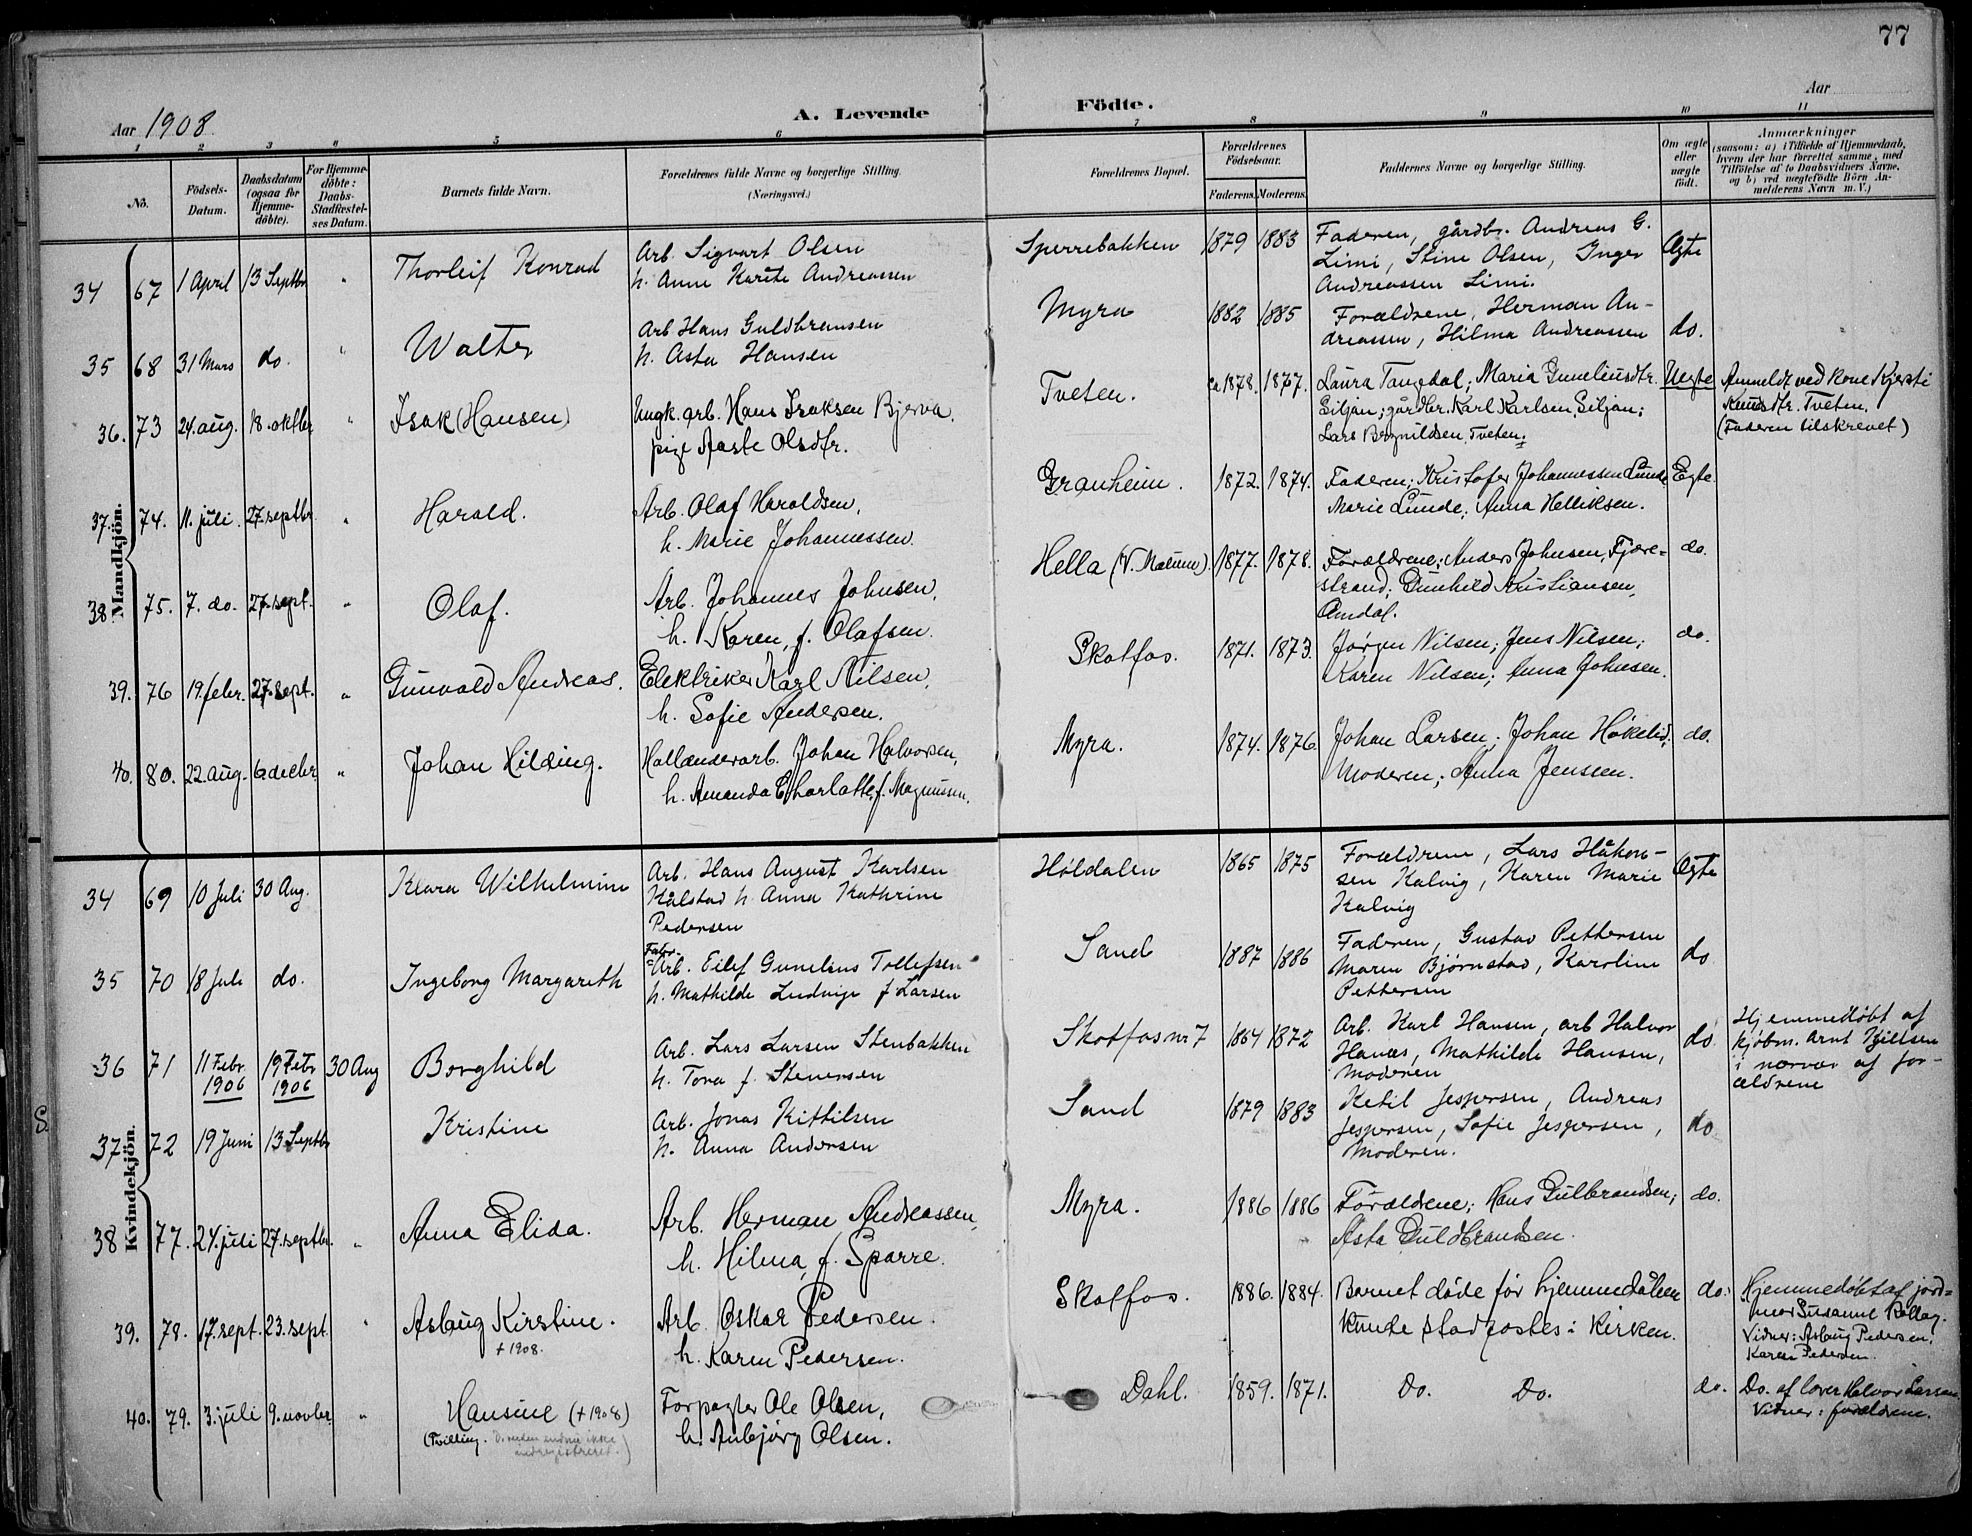 77
Aar 1908.
A. Levende
Födte.
Aar
1 2 3 4 5 6 7 8 9 10 11
No.
Födsels-Datum.
Daabsdatum (ogsaa for Hjemme-döbte).
For Hjemme-döbte: Daabs-Stadfæstel-ses Datum.
Barnets fulde Navn.
Forældrenes fulde Navne og borgerlige Stilling. (Næringsvei.)
Forældrenes Bopæl.
Forældrenes Födselsaar.
Faderens. Moderens.
Faddernes Navne og borgerlige Stilling.
Om ægte eller uægte födt.
Anmærkninger (saasom: a) i Tilfælde af Hjemmedaab, hvem der har forrettet samme, med Tilföielse af to Daabsvidners Navne, og b) ved uægtefödte Börn An-melderens Navn m. V.)
Mandkjön.
34 67 1 April 13 Septbr " Thorleif Konrad
Arb. Sigvart Olsen
h. Anne Karete Andreassen
Sperrebakken 1879 1883
Faderen, gårdbr. Andreas G.
Limi, Stine Olsen, Inger
Andreassen Limi.
Ægte
35 68 31 Mars do. " Walter
Arb Hans Guldbransen
h. Asta Hansen
Myra 1882 1885
Forældrene, Herman An-
dreassen, Hilma Andreassen
do.
36. 73 24. aug. 18. oktbr " Isak (Hansen)
Ungk. arb. Hans Isaksen Bjerva.
pige Aaste Olsdtr.
Tveten. ca 1878. 1877.
Laura Tangedal; Maria Guneliusdtr.
Siljan; gårdbr. Karl Karlsen, Siljan;
Lars Brynildsen, Tveten.
Uegte
Anmeldt ved kone Kjersti
Knudsdtr. Tveten.
(Faderen tilskrevet)
37. 74. 11. juli. 27. septbr. " Harald.
Arb. Olaf Haraldsen,
h. Marie Johannessen.
Granheim. 1872. 1874.
Faderen; Kristofer Johannessen Lunde,
Marie Lunde; Anna Helliksen.
Egte.
38. 75. 7. do. 27. sept. " Olaf.
Arb. Johannes Johnsen,
h. Karen, f. Olafsen.
Hella (V. Mælum) 1877. 1878.
Forældrene; Anders Johnsen, Fjære-
strand; Gunhild Kristiansen,
Omdal.
do.
39. 76 19. febr. 27. sept. " Gunvald Andreas.
Elektriker Karl Nilsen,
h. Sofie Andersen.
Skotfos. 1871. 1873.
Jørgen Nilsen; Jens Nilsen;
Karen Nilsen; Anna Johnsen.
do.
40. 80. 22. aug. 6 decbr. " Johan Hilding.
Hollænderarb. Johan Halvorsen,
h. Amanda Charlotte, f. Magnussen.
Myra. 1874. 1876.
Johan Larsen; Johan Høkelid;
Moderen; Anna Jenssen.
do.
Kvindekjön.
34 69 10 Juli 30 Aug. Klara Wilhelmine
Arb. Hans August Karlsen
Kålstad h. Anna Kathrine
Pedersen
Høldalen 1865 1875
Forældrene, Lars Håkon-
sen Kalvig, Karen Marie
Kalvig
Ægte
35 70 18 Juli do. Ingeborg Margareth
Fabr.
Arb. Eilef Gunelius Tollefsen
h. Mathilde Ludvige f Larsen
Sand 1887 1886
Faderen, Gustav Pettersen
Maren Bjørnstad, Karoline
Pettersen
do
36 71 11 Febr. 1906 19 Febr 1906 30 Aug Borghild
Arb. Lars Larsen Stenbakken
h. Tora f. Stenersen
Skotfos nr 7 1864 1872
Arb. Karl Hansen, arb Halvor
Hanæs, Mathilde Hansen,
Moderen
do.
Hjemmedøbt af
kjøbm. Arnt Kjellsen
i nærvær af for-
ældrene
S.
37 72 19 Juni 13 Septbr Kristine
Arb. Jonas Kittilsen
h. Anna Andersen
Sand 1879 1883
Ketil Jespersen, Andreas
Jespersen, Sofie Jespersen,
Moderen.
do
38 77. 24. juli 27. septbr. " Anna Elida.
Arb. Herman Andreassen,
h. Hilma, f. Sparre.
Myra. 1886 1886
Forældrene; Hans Gulbrandsen;
Asta Guldbrandsen.
do.
39. 78. 17. sept. 23. sept. " Aslaug Kirstine.
+ 1908.
Arb. Oskar Pedersen.
h. Karen Pedersen.
Skotfos. 1886. 1884.
Barnet døde før hjemmedåben
kunde stadfæstes i kirken.
do.
Hjemmedøbt af jord-
mor Susanne Rollag.
Vidner: Aslaug Pedersen,
Karen Pedersen.
40. 79. 3. juli 9. novbr. " Hansine (+ 1908)
(Tvilling. Den anden endnu ikke
indregistreret.)
Forpagter Ole Olsen,
h. Anbjørg Olsen.
Dahl. 1859. 1871.
Do. Do.
do.
Do. af lærer Halvor Larsen.
Vidner: forældrene.